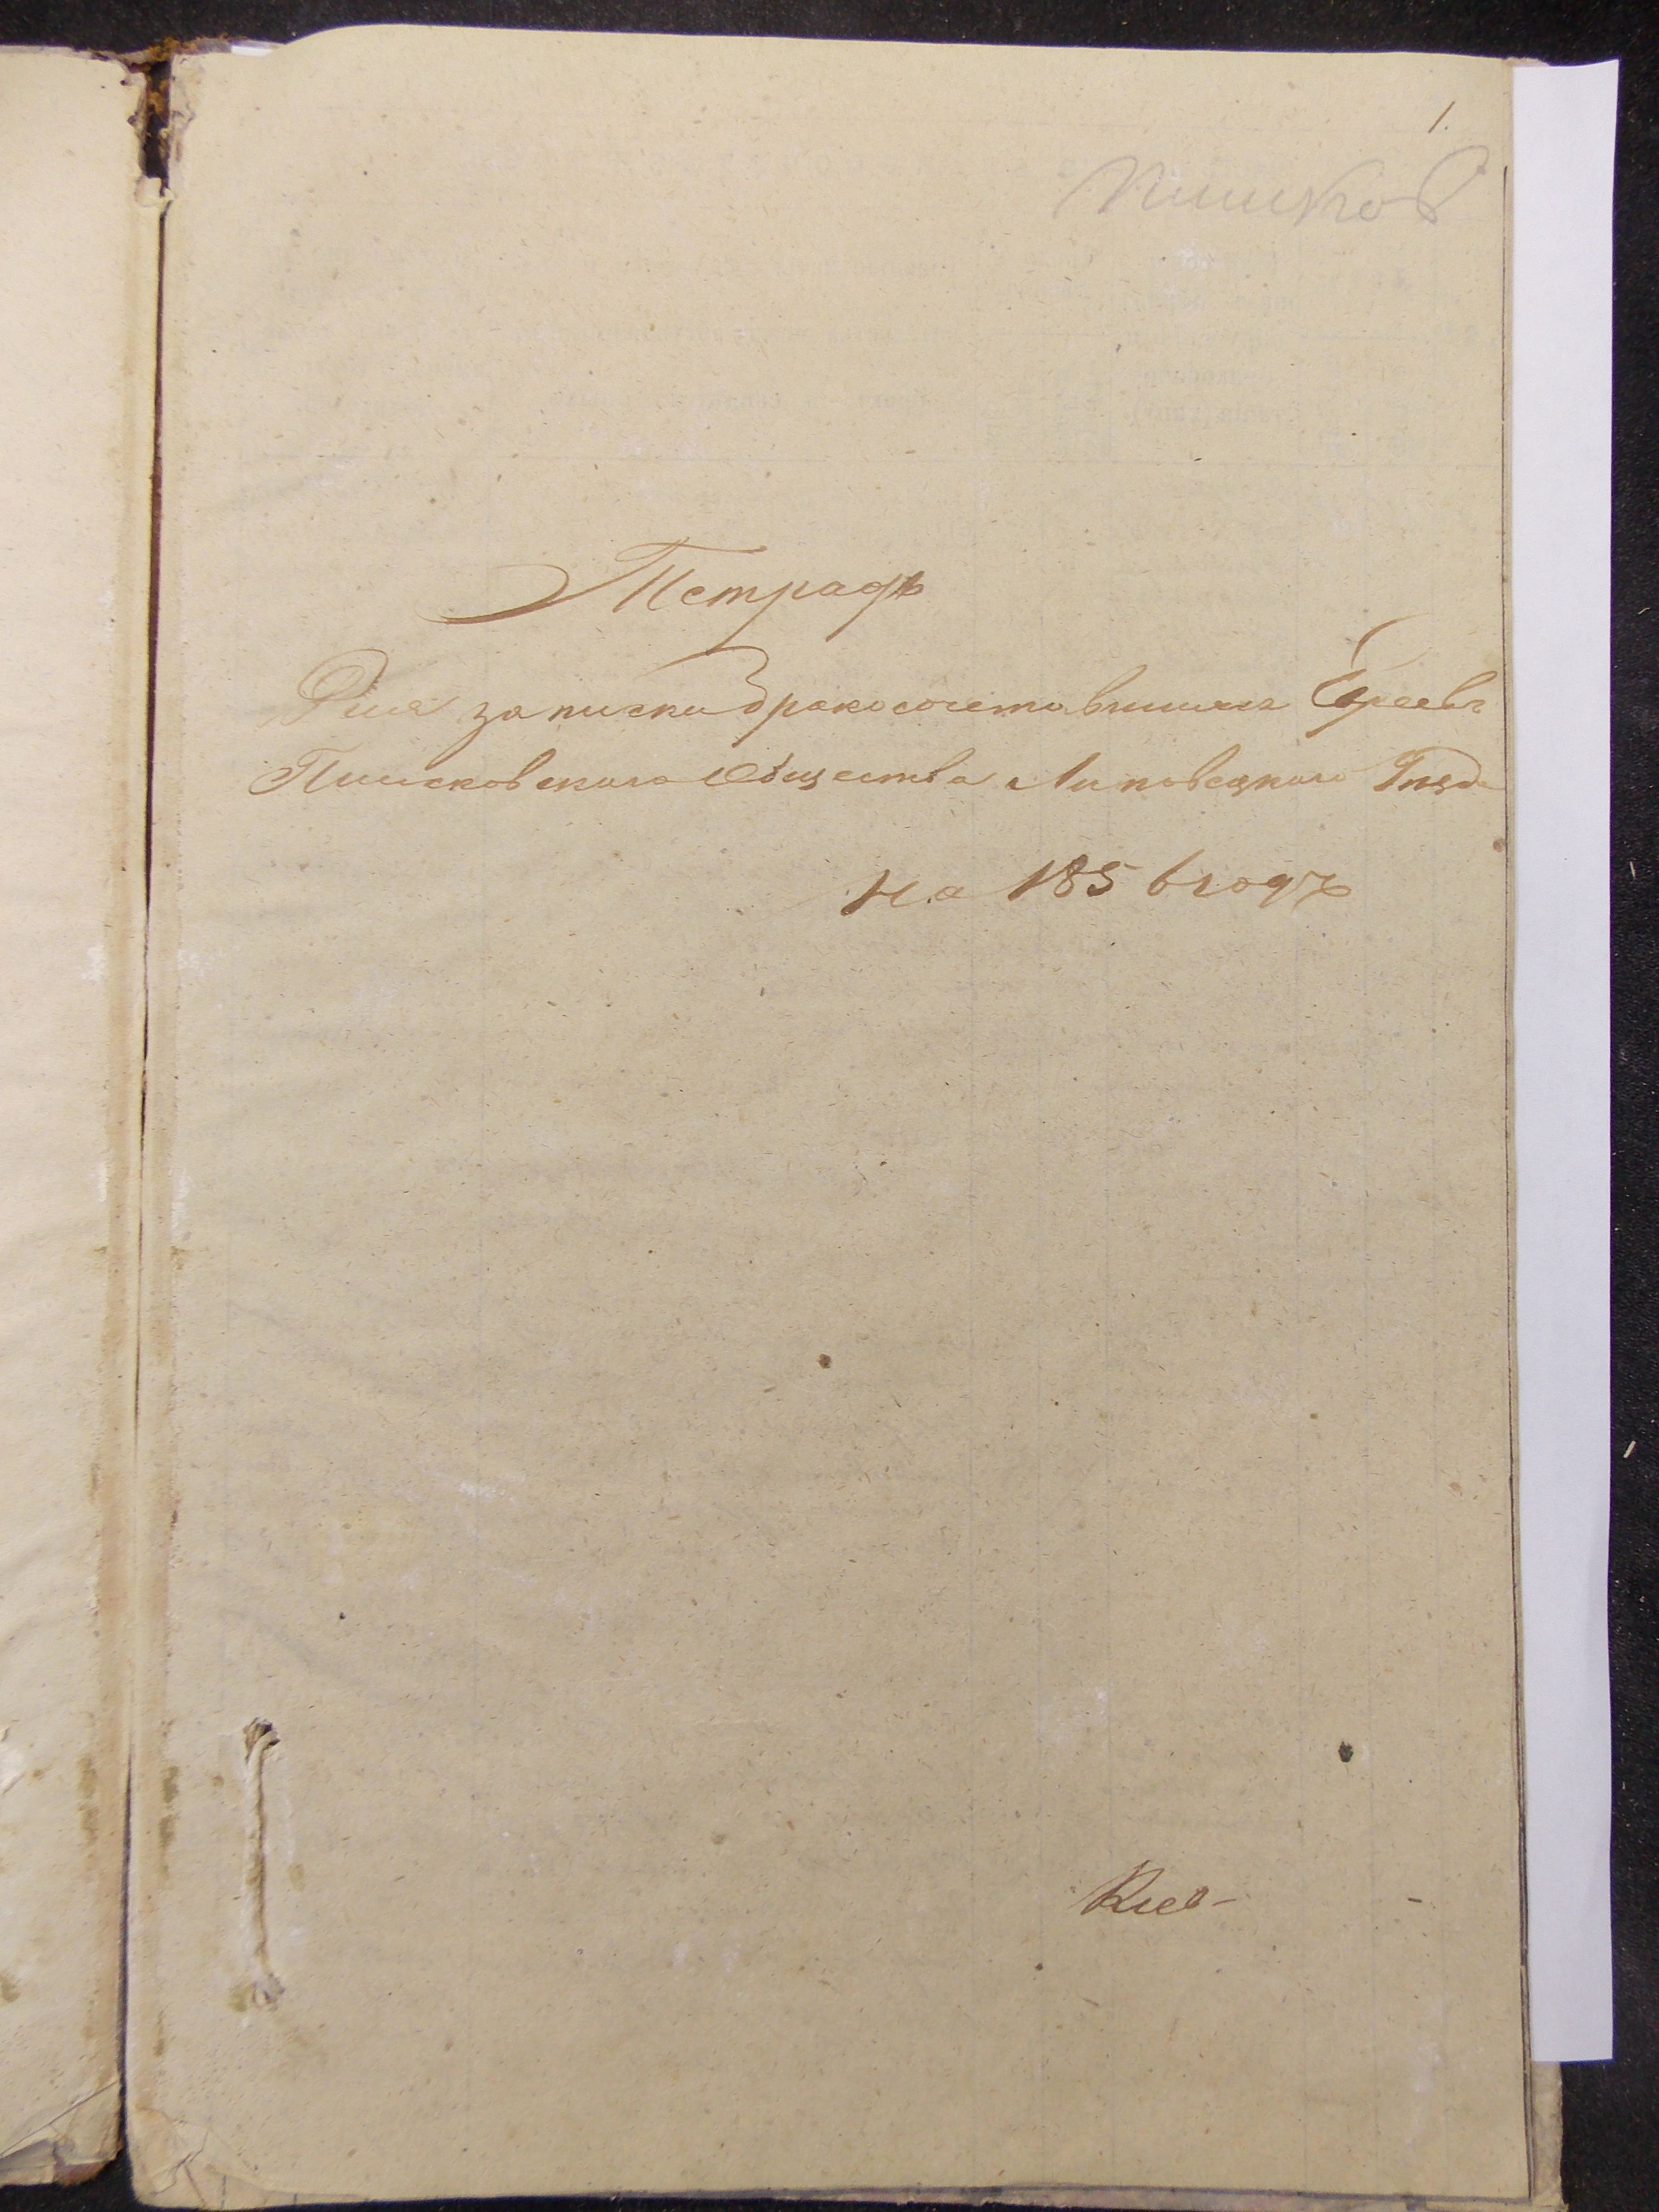 1.
Пиисков
Тетрадь
Для записки бракосочетавшихся Евреевъ
Пиисковскаго Общества Липовецкаго Уезда
на 1856 годъ
Киев-